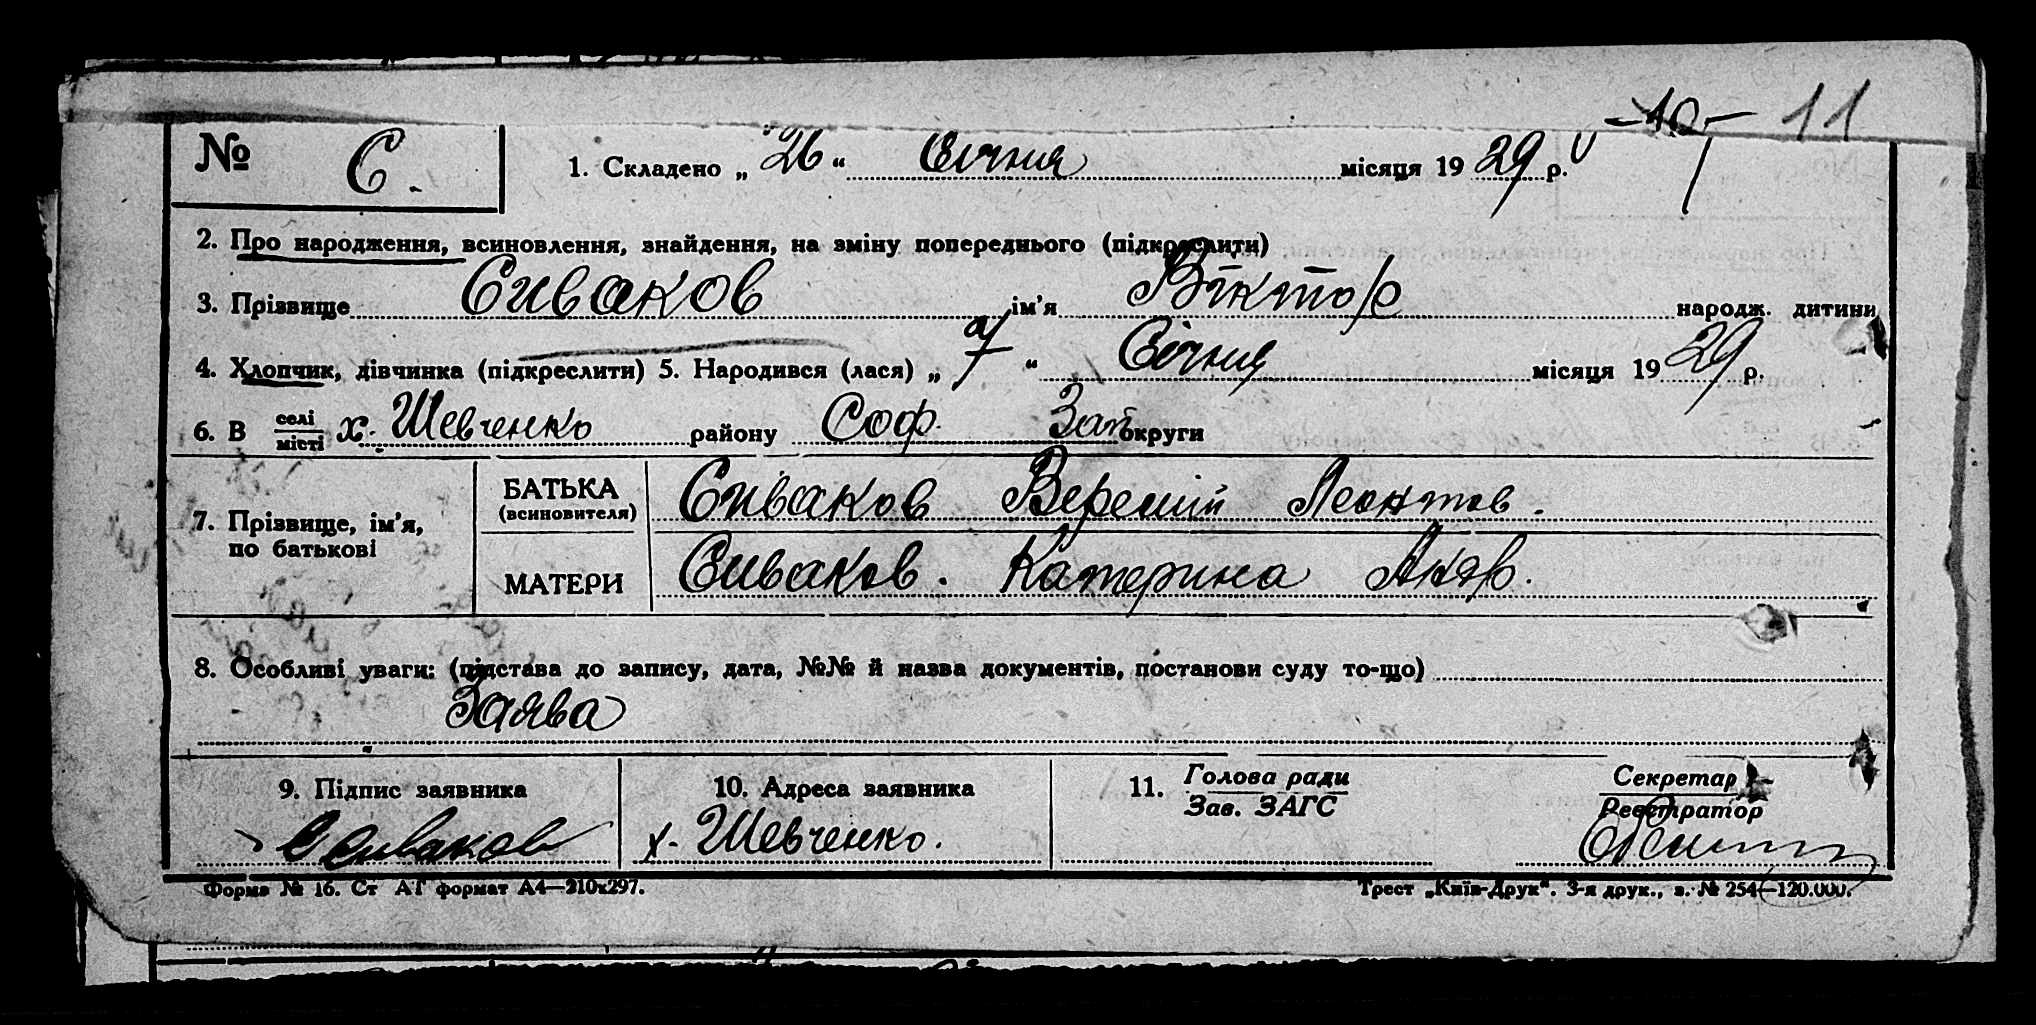 -10- 11
№ С. 1. Складено „26“ Січня місяця 1929 р.
2. Про народження, всиновлення, знайдення, на зміну попереднього (підкреслити)
3. Прізвище Сиваков ім’я Віктор народж. дитини
4. Хлопчик, дівчинка (підкреслити) 5. Народився (лася) „7“ Січня місяця 1929 р.
6. В селі місті х. Шевченко району Соф. Зап. округи
7. Прізвище, ім’я, по батькові
БАТЬКА (всиновителя) Сиваков Леонтов.
МАТЕРИ Сиваков. Катерина
8. Особливі уваги: (підстава до запису, дата, №№ й назва документів, постанови суду то-що)
Заява
9. Підпис заявника 10. Адреса заявника 11. Голова ради Зав. ЗАГС Секретар Реєстратор
Сиваков х. Шевченко.
Форма № 16. Ст АТ формат А4—210х297. Трест „Київ-Друк“. 3-я друк., з. № 254—120.000.